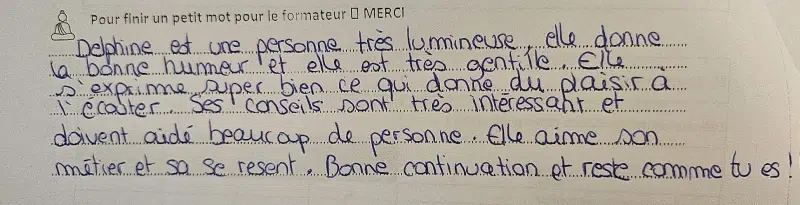 Pour finir un petit mot pour le formateur □ MERCI
Delphine est une personne très lumineuse, elle donne
la bonne humeur et elle est très gentille. Elle
s'exprime super bien ce qui donne du plaisir à
l'écouter. Ses conseils sont très intéressant et
doivent aidé beaucoup de personne. Elle aime son
métier et sa se resent. Bonne continuation et reste comme tu es !